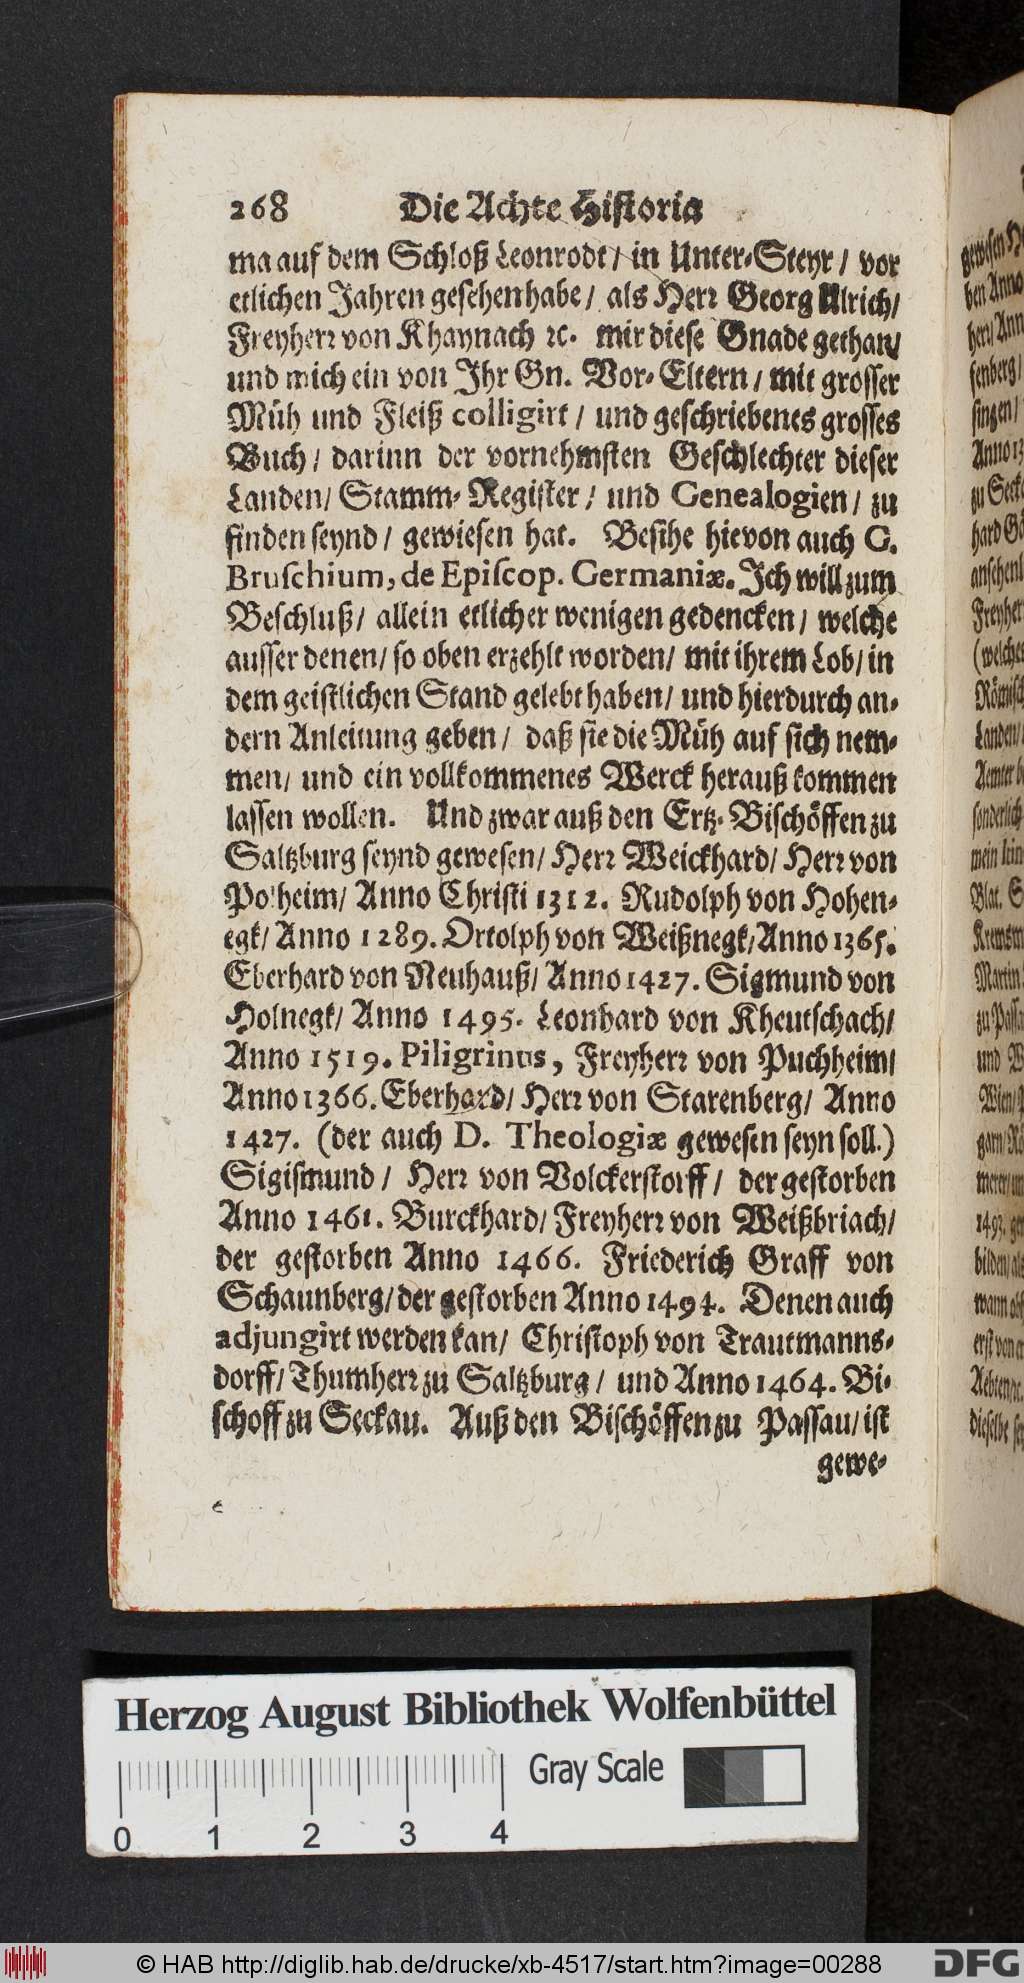 268 Die Achte Historia
ma auf dem Schloß Leonrodt / in Unter-Steyr / vor
etlichen Jahren gesehen habe / als Herr Georg Ulrich /
Freyherr von Khaynach ꝛc. mir diese Gnade gethan /
und mich ein von Ihr Gn. Vor-Eltern / mit grosser
Müh und Fleiß colligirt / und geschriebenes grosses
Buch / darinn der vornehmsten Geschlechter dieser
Landen / Stamm-Register / und Genealogien / zu
finden seynd / gewiesen hat. Besihe hievon auch G.
Bruschium, de Episcop. Germaniæ. Ich will zum
Beschluß / allein etlicher wenigen gedencken / welche
ausser denen / so oben erzehlt worden / mit ihrem Lob / in
dem geistlichen Stand gelebt haben / und hierdurch an-
dern Anleitung geben / daß sie die Müh auf sich nem-
men / und ein vollkommenes Werck herauß kommen
lassen wollen. Und zwar auß den Ertz-Bischöffen zu
Saltzburg seynd gewesen / Herr Weickhard / Herr von
Polheim / Anno Christi 1312. Rudolph von Hohen-
egk / Anno 1289. Ortolph von Weißnegk / Anno 1365.
Eberhard von Neuhauß / Anno 1427. Sigmund von
Holnegk / Anno 1495. Leonhard von Kheutschach /
Anno 1519. Piligrinus, Freyherr von Puchheim /
Anno 1366. Eberhard / Herr von Starenberg / Anno
1427. (der auch D. Theologiæ gewesen seyn soll.)
Sigismund / Herr von Volckerstorff / der gestorben
Anno 1461. Burckhard / Freyherr von Weißbriach /
der gestorben Anno 1466. Friederich Graff von
Schaunberg / der gestorben Anno 1494. Denen auch
adjungirt werden kan / Christoph von Trautmanns-
dorff / Thumherr zu Saltzburg / und Anno 1464. Bi-
schoff zu Seckau. Auß den Bischöffen zu Passau / ist
gewe-
Herzog August Bibliothek Wolfenbüttel
Gray Scale
0 1 2 3 4
© HAB http://diglib.hab.de/drucke/xb-4517/start.htm?image=00288
DFG